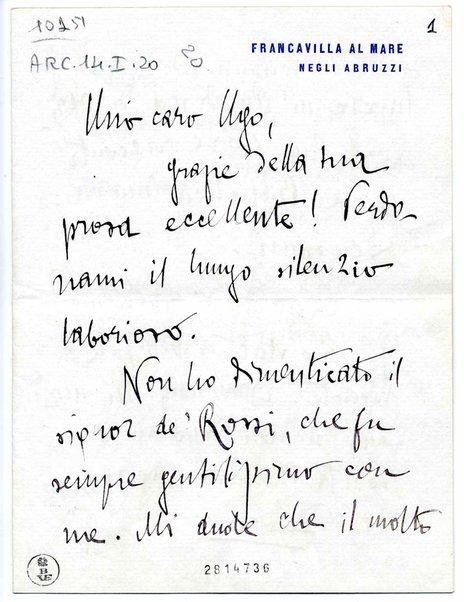 10251
1
ARC.14.I.20
FRANCAVILLA AL MARE
NEGLI ABRUZZI
Mio caro Ugo,
grazie della tua
prosa eccellente! Perdo-
nami il lungo silenzio
laborioso.
Non ho dimenticato il
signor de' Rossi, che fu
sempre gentilissimo con
me. Mi duole che il molto
2814736